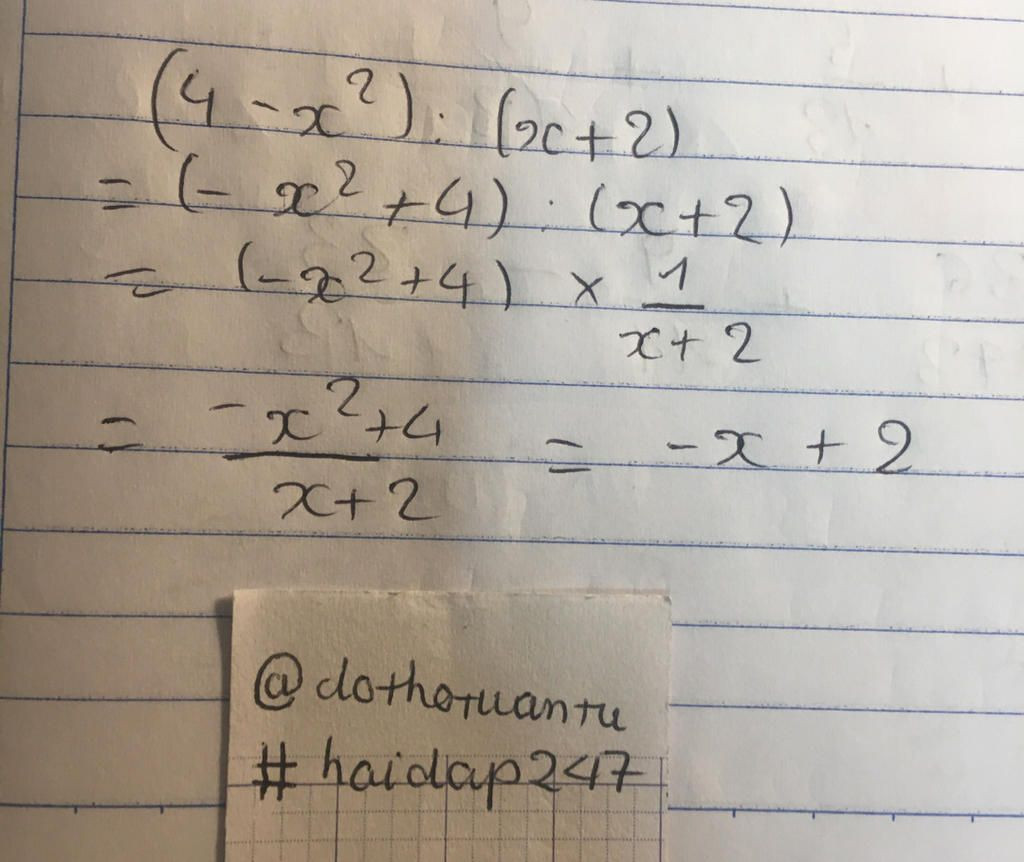 (4 - x²) : (x + 2)
= (- x² + 4) . (x + 2)
= (-x² + 4) × 1/(x + 2)
= (-x² + 4)/(x + 2) = -x + 2
@dothotuantu
#hoidap247